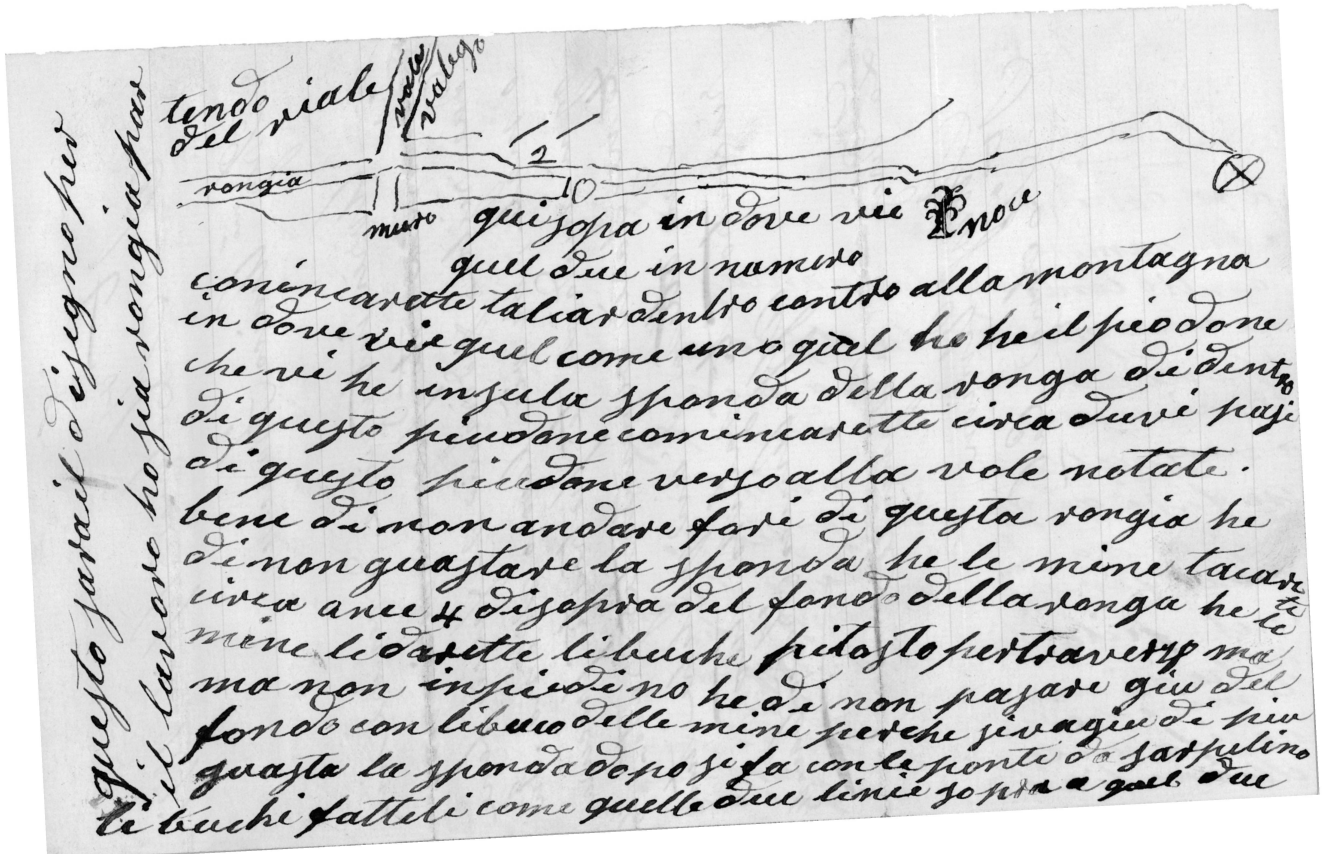 questo sarail disegno per
il lavoro ho sia rongia par
tendo
del viale
vale
valego
rongia
muro
2
10
noce
qui sopa in dove vie
quel due in numero
comincarette taliar dentro contro alla montagna
in dove vie quel come uno quel ho he il piodone
che vi he insula sponda della ronga di dentro
di questo piudone comincarette circa duvi pasi
di questo piudone verso alla vale notate.
bene di non andare fori di questa rongia he
di non guastare la sponda he le mine tacarette
circa once 4 disopra del fondo della ronga he le
mine lidarette libuchi pitosto per traverso ma
ma non inpiedi no he di non pasare giu del
fondo con libuco delle mine perche si va giu di piu
guasta la sponda dopo si fa con le ponte da scarpelino
li buchi fatteli come quelle due linie sopra a quel due